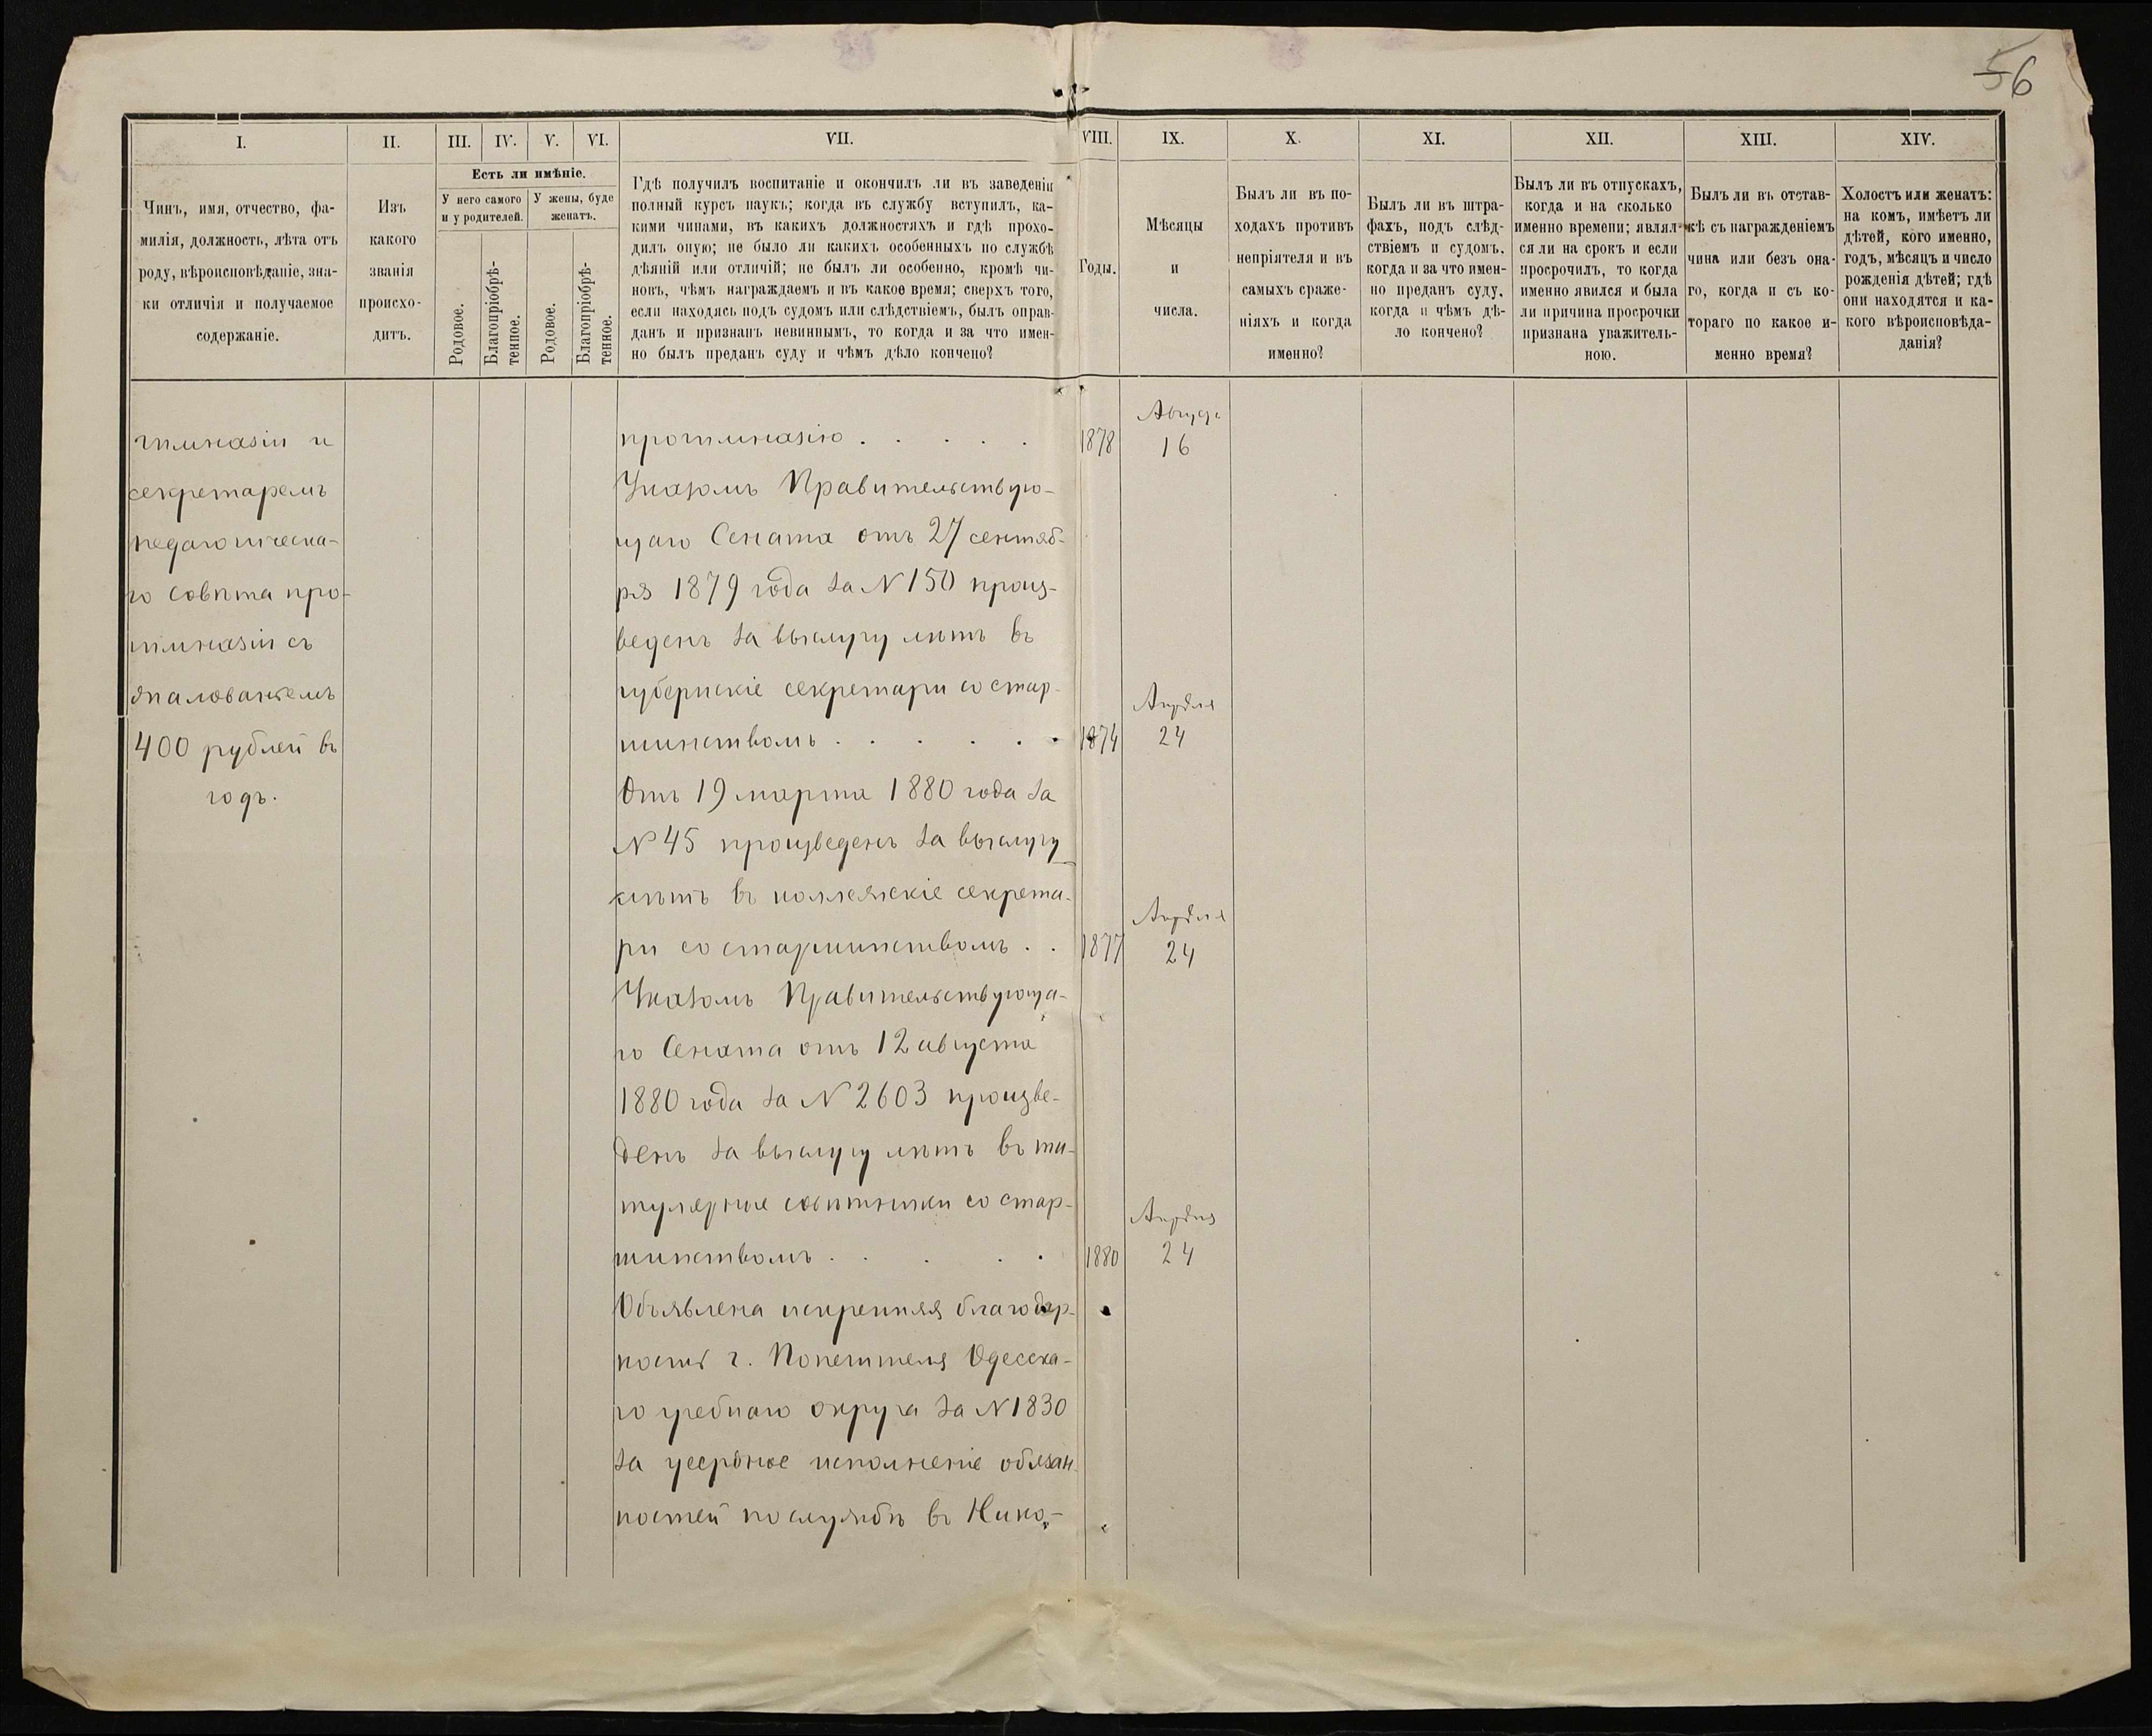 56
I.
II.
III.
IV.
V.
VI.
VII.
VIII.
IX.
X.
XI.
XII.
XIII.
XIV.
Чинъ, имя, отчество, фа-
милія, должность, лѣта отъ
роду, вѣроисповѣданіе, зна-
ки отличія и получаемое
содержаніе.
Изъ
какого
званія
происхо-
дитъ.
Есть ли имѣніе.
У него самого
и у родителей.
У жены, буде
женатъ.
Родовое.
Благопріобрѣ-
тенное.
Родовое.
Благопріобрѣ-
тенное.
Гдѣ получилъ воспитаніе и окончилъ ли въ заведеніи
полный курсъ наукъ; когда въ службу вступилъ, ка-
кими чинами, въ какихъ должностяхъ и гдѣ прохо-
дилъ оную; не было ли какихъ особенныхъ по службѣ
дѣяній или отличій; не былъ ли особенно, кромѣ чи-
новъ, чѣмъ награждаемъ и въ какое время; сверхъ того,
если находясь подъ судомъ или слѣдствіемъ, былъ оправ-
данъ и признанъ невиннымъ, то когда и за что имен-
но былъ преданъ суду и чѣмъ дѣло кончено?
Годы.
Мѣсяцы
и
числа.
Былъ ли въ по-
ходахъ противъ
непріятеля и въ
самыхъ сраже-
ніяхъ и когда
именно?
Былъ ли въ штра-
фахъ, подъ слѣд-
ствіемъ и судомъ.
когда и за что имен-
но преданъ суду.
когда и чѣмъ дѣ-
ло кончено?
Былъ ли въ отпускахъ,
когда и на сколько
именно времени; являл-
ся ли на срокъ и если
просрочилъ, то когда
именно явился и была
ли причина просрочки
признана уважитель-
ною.
Былъ ли въ отстав-
кѣ съ награжденіемъ
чина или безъ она-
го, когда и съ ко-
тораго по какое и-
менно время?
Холостъ или женатъ:
на комъ, имѣетъ ли
дѣтей, кого именно,
годъ, мѣсяцъ и число
рожденія дѣтей; гдѣ
они находятся и ка-
кого вѣроисповѣда-
данія?
гимназіи и
секретаремъ
педагогическа-
го совѣта про-
гимназіи съ
жалованьемъ
400 рублей въ
годъ.
прогимназію . . . . . 1878 Август 16
Указомъ Правительствую-
щаго Сената отъ 27 сентяб-
ря 1879 года за N 150 произ-
веденъ за выслугу лѣтъ въ
губернскіе секретари со стар-
шинствомъ . . . . . 1874 Апрѣля 24
Отъ 19 марта 1880 года за
N 45 произведенъ за выслугу
лѣтъ въ коллежскіе секрета-
ри со старшинствомъ . . 1877 Апрѣля 24
Указомъ Правительствующа-
го Сената отъ 12 августа
1880 года за N 2603 произве-
денъ за выслугу лѣтъ въ ти-
тулярные совѣтники со стар-
шинствомъ . . . . 1880 Апрѣля 24
Объявлена искренняя благодар-
ность г. Попечителя Одесска-
го учебнаго округа за N 1830
за усердное исполненіе обязан-
ностей по службѣ въ Нико-